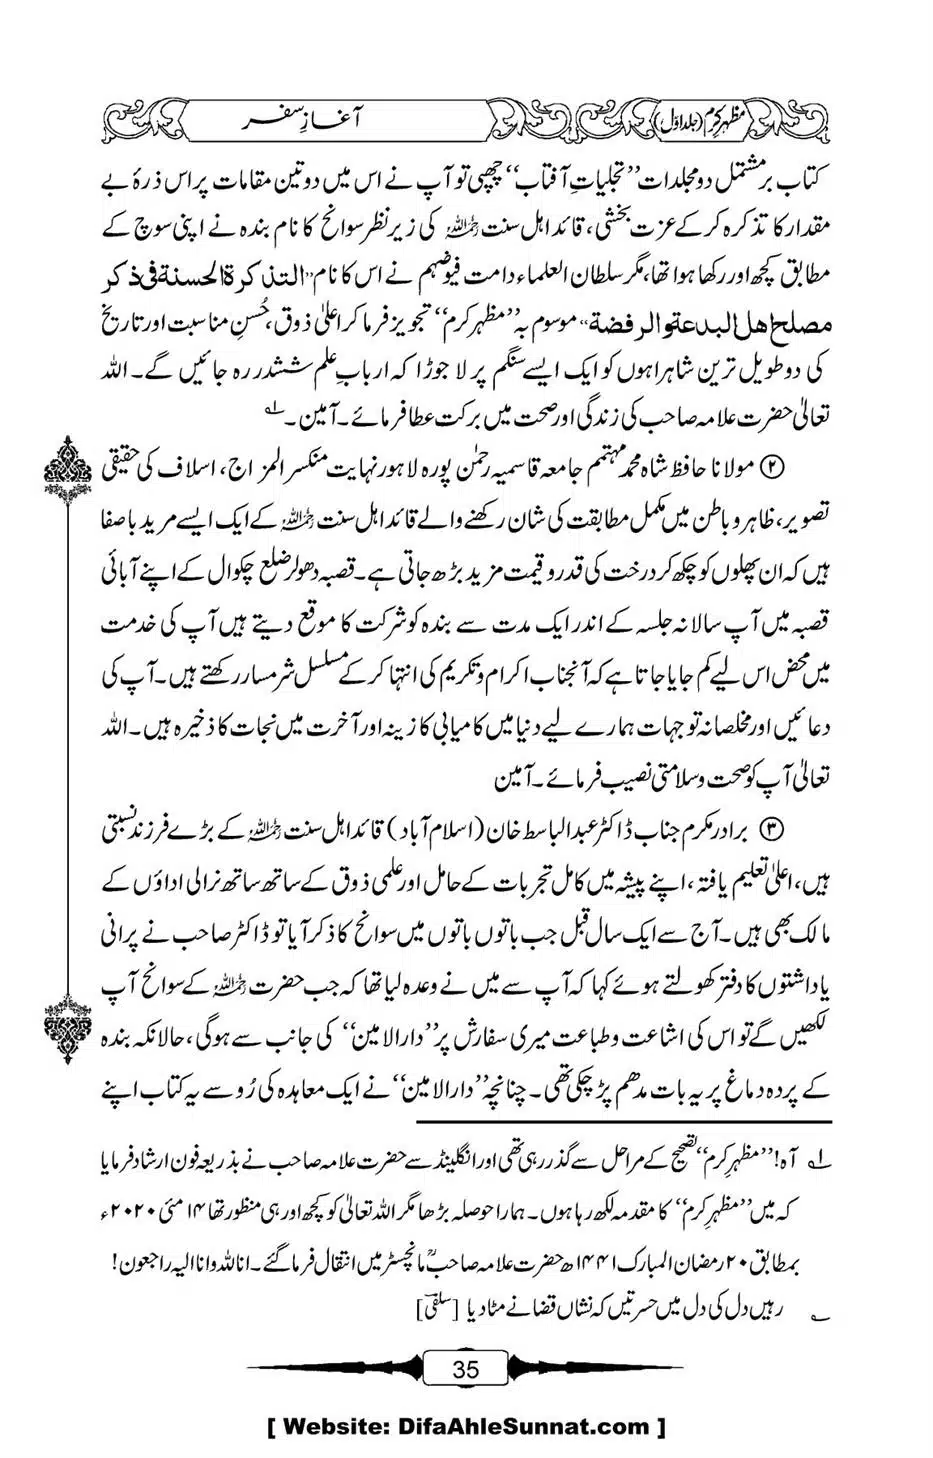 مظہرِ کرم (جلد اوّل)
آغازِ سفر
کتاب بر مشتمل دو مجلدات ’’تجلیاتِ آفتاب‘‘ چھپی تو آپ نے اس میں دو تین مقامات پر اس ذرۂ بے
مقدار کا تذکرہ کر کے عزت بخشی، قائد اہل سنت رحمہ اللہ کی زیر نظر سوانح کا نام بندہ نے اپنی سوچ کے
مطابق کچھ اور رکھا ہوا تھا، مگر سلطان العلماء دامت فیوضہم نے اس کا نام ’’التذکرۃ الحسنۃ فی ذکر
مصلح اھل البدعۃ والرفضۃ‘‘ موسوم بہ ’’مظہرِ کرم‘‘ تجویز فرما کر اعلیٰ ذوق، حُسنِ مناسبت اور تاریخ
کی دو طویل ترین شاہراہوں کو ایک ایسے سنگم پر لا جوڑا کہ اربابِ علم ششدر رہ جائیں گے۔ اللہ
تعالیٰ حضرت علامہ صاحب کی زندگی اور صحت میں برکت عطا فرمائے۔ آمین۔ ؂۱
② مولانا حافظ شاہ محمد مہتمم جامعہ قاسمیہ رحمٰن پورہ لاہور نہایت منکسر المزاج، اسلاف کی حقیقی
تصویر، ظاہر و باطن میں مکمل مطابقت کی شان رکھنے والے قائد اہل سنت رحمہ اللہ کے ایک ایسے مرید باصفا
ہیں کہ ان پھلوں کو چکھ کر درخت کی قدر و قیمت مزید بڑھ جاتی ہے۔ قصبہ دھولر ضلع چکوال کے اپنے آبائی
قصبہ میں آپ سالانہ جلسہ کے اندر ایک مدت سے بندہ کو شرکت کا موقع دیتے ہیں آپ کی خدمت
میں محض اس لیے کم جایا جاتا ہے کہ آنجناب اکرام و تکریم کی انتہا کر کے مسلسل شرمسار رکھتے ہیں۔ آپ کی
دعائیں اور مخلصانہ توجہات ہمارے لیے دنیا میں کامیابی کا زینہ اور آخرت میں نجات کا ذخیرہ ہیں۔ اللہ
تعالیٰ آپ کو صحت و سلامتی نصیب فرمائے۔ آمین
③ برادر مکرم جناب ڈاکٹر عبدالباسط خان (اسلام آباد) قائد اہل سنت رحمہ اللہ کے بڑے فرزند نسبتی
ہیں، اعلیٰ تعلیم یافتہ، اپنے پیشہ میں کامل تجربات کے حامل اور علمی ذوق کے ساتھ ساتھ نرالی اداؤں کے
مالک بھی ہیں۔ آج سے ایک سال قبل جب باتوں باتوں میں سوانح کا ذکر آیا تو ڈاکٹر صاحب نے پرانی
یاداشتوں کا دفتر کھولتے ہوئے کہا کہ آپ سے میں نے وعدہ لیا تھا کہ جب حضرت رحمہ اللہ کے سوانح آپ
لکھیں گے تو اس کی اشاعت و طباعت میری سفارش پر ’’دارالامین‘‘ کی جانب سے ہوگی، حالانکہ بندہ
کے پردہ دماغ پر یہ بات مدھم پڑ چکی تھی۔ چنانچہ ’’دارالامین‘‘ نے ایک معاہدہ کی رُو سے یہ کتاب اپنے
؂۱ آہ! ’’مظہرِ کرم‘‘ تصحیح کے مراحل سے گذر رہی تھی اور انگلینڈ سے حضرت علامہ صاحب نے بذریعہ فون ارشاد فرمایا
کہ میں ’’مظہرِ کرم‘‘ کا مقدمہ لکھ رہا ہوں۔ ہمارا حوصلہ بڑھا مگر اللہ تعالیٰ کو کچھ اور ہی منظور تھا ۱۴ مئی ۲۰۲۰ء
بمطابق ۲۰ رمضان المبارک ۱۴۴۱ھ حضرت علامہ صاحبؒ مانچسٹر میں انتقال فرما گئے۔ انا للہ وانا الیہ راجعون!
؂ رہیں دل کی دل میں حسرتیں کہ نشاں قضا نے مٹا دیا [سلفیؔ]
35
[ Website: DifaAhleSunnat.com ]